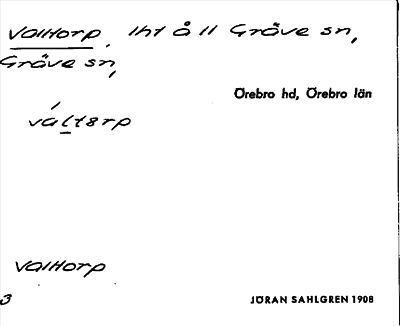 Valltorp, lht å ll Gräve sn,
Gräve sn,
Örebro hd, Örebro län
váltsrp
Valltorp
3
JÖRAN SAHLGREN 1908